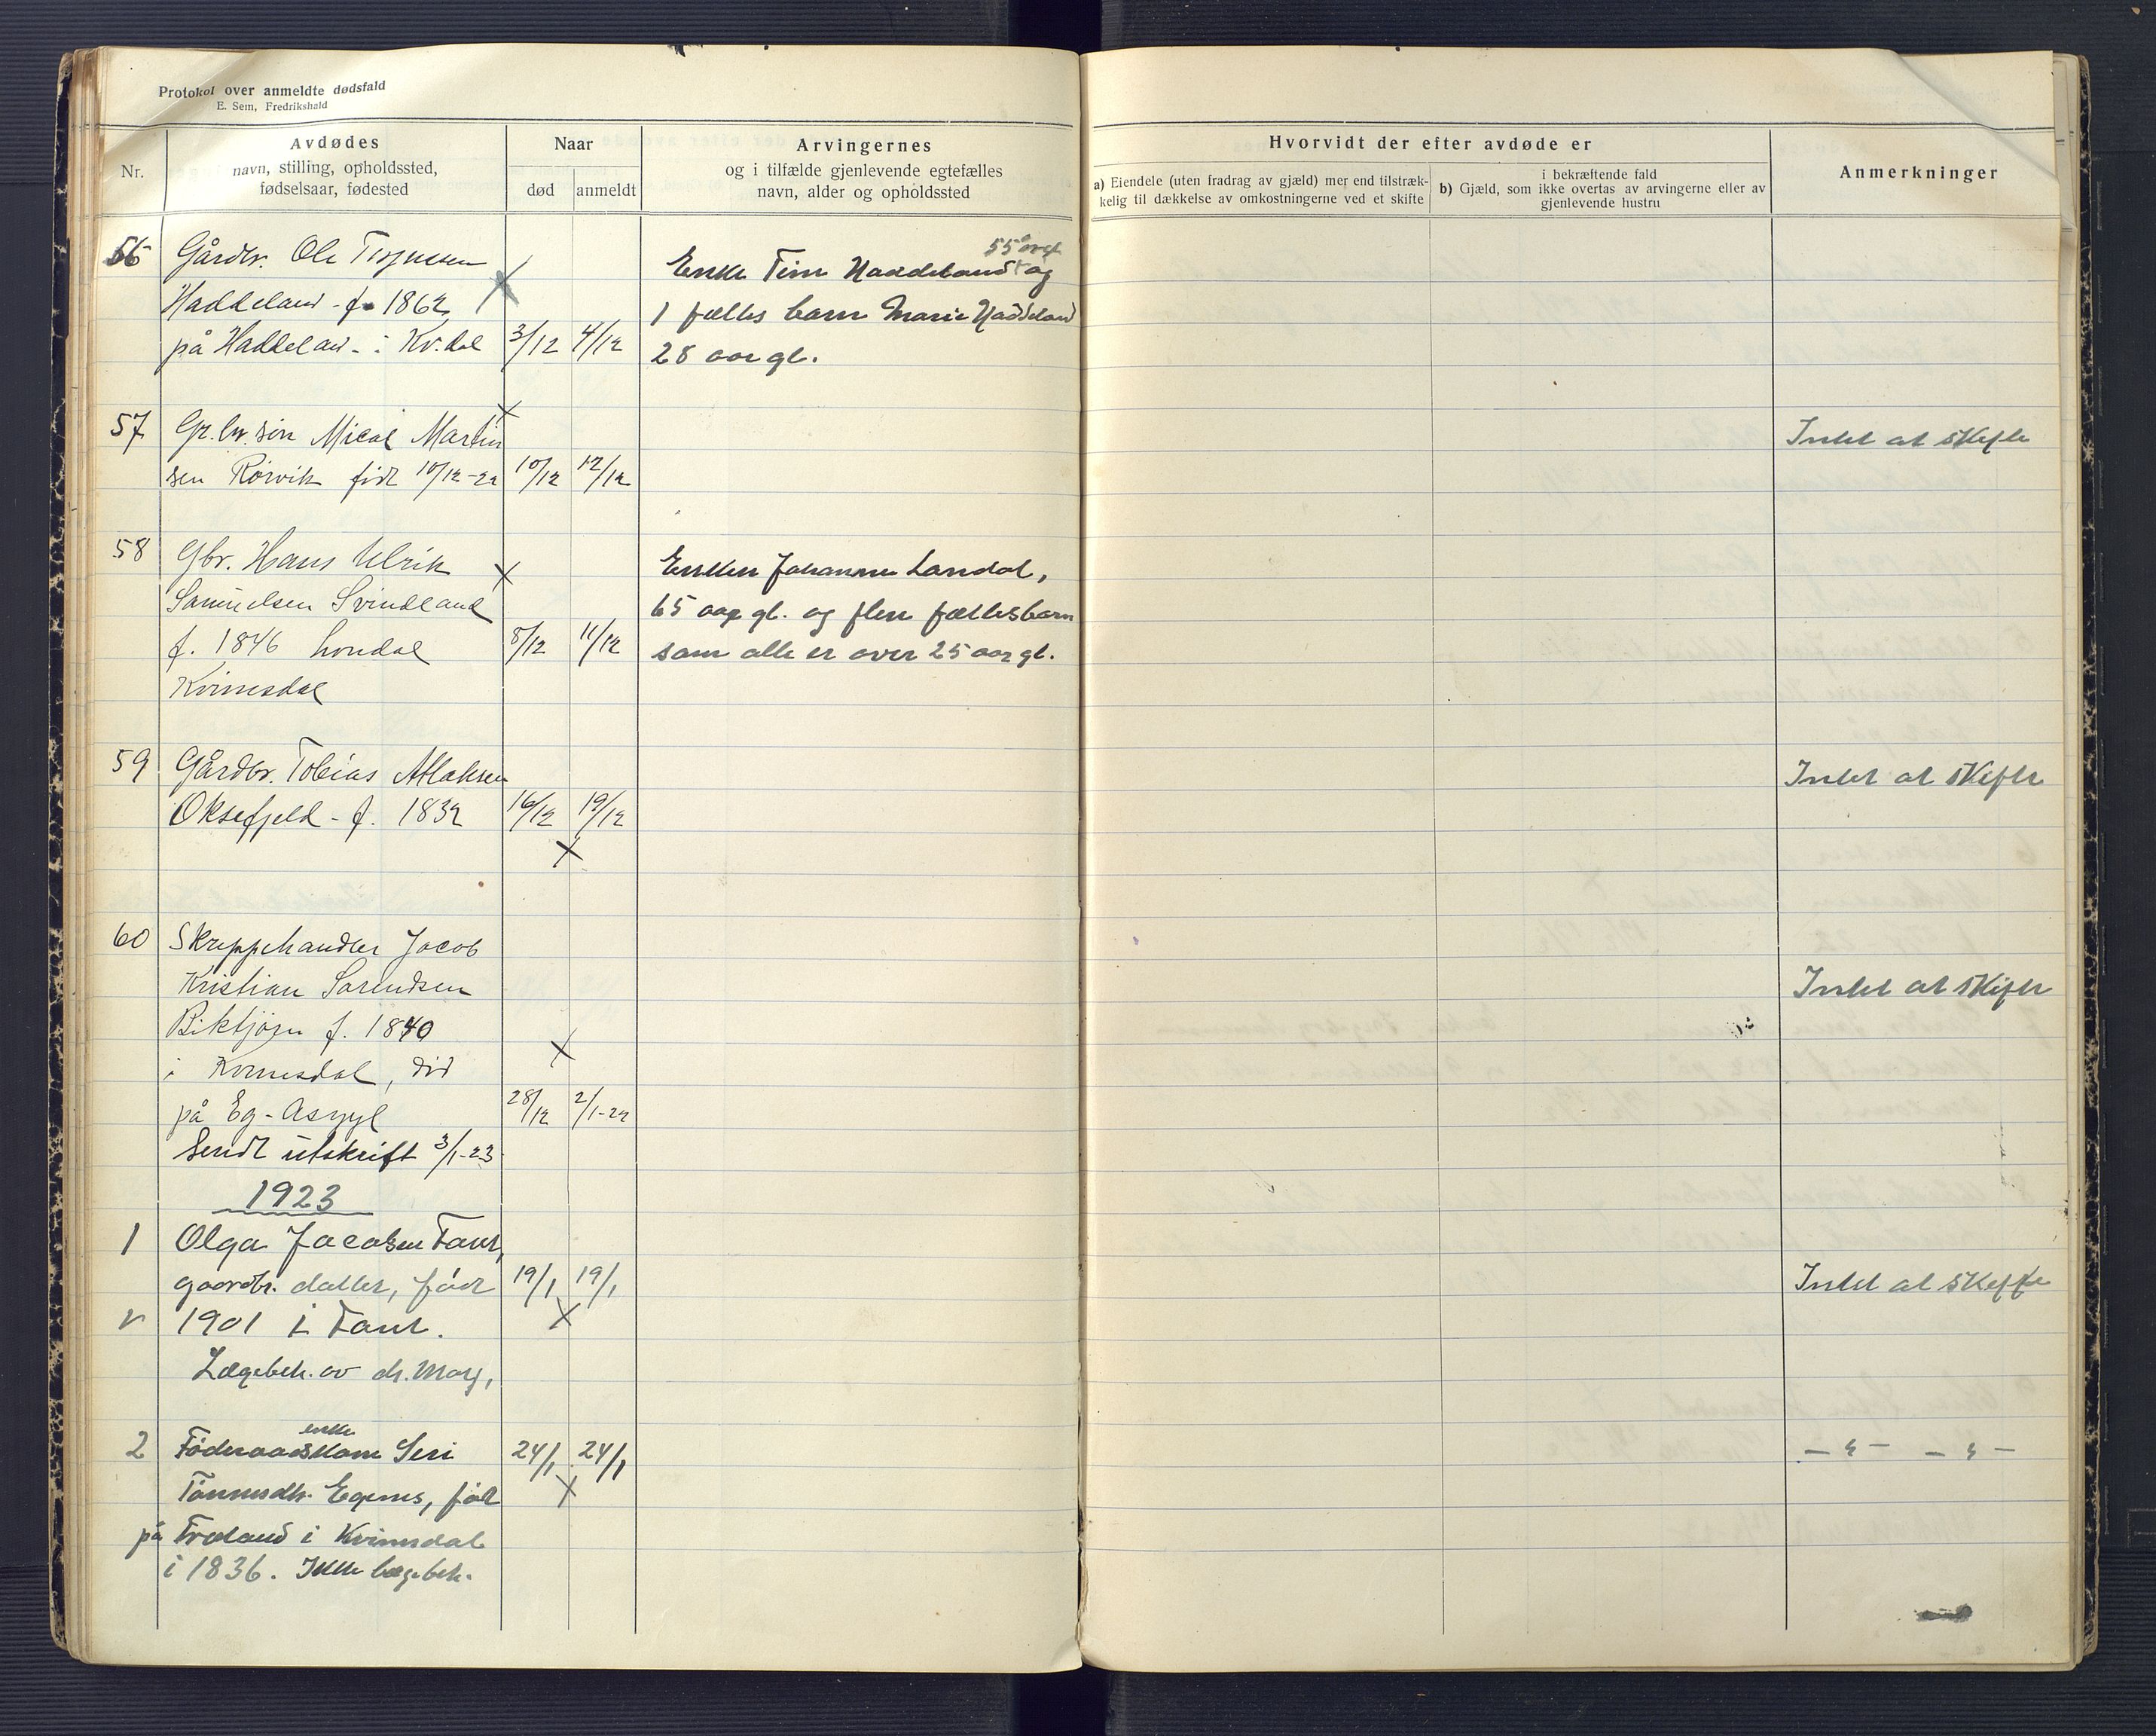 Protokol over anmeldte dødsfald
E. Sem, Fredrikshald
Nr.
Avdødes
navn, stilling, opholdssted,
fødselsaar, fødested
Naar
død
anmeldt
Arvingernes
og i tilfælde gjenlevende egtefælles
navn, alder og opholdssted
Hvorvidt der efter avdøde er
a) Eiendele (uten fradrag av gjæld) mer end tilstræk-
kelig til dækkelse av omkostningerne ved et skifte
i bekræftende fald
b) Gjæld, som ikke overtas av arvingerne eller av
gjenlevende hustru
Anmerkninger
56 Gårdbr. Ole
Haddeland - f. 1862
på Haddeland - i Kv.dal 3/12 4/12
55
Enke Haddeland og
1 fælles barn Marie Haddeland
28 aar gl.
57 Gr.br. søn Mical Martin
sen Rørvik født 10/12-22 10/12 12/12
Intet at skifte
58 Gbr. Hans Ulrik
Samuelsen Svindland
f. 1846
Kvinesdal
8/12 11/12
Enken Johanne Londal,
65 aar gl. og flere fællesbarn
som alle er over 25 aar gl.
59 Gårdbr. Tobias Atlaksen
Oksefjeld - f. 1832 16/12 19/12
Intet at skifte
60 Skreppehandler Jacob
Kristian Sørendsen
f. 1840
i Kvinesdal, død
på Eg-Asyyl 28/12 2/1-22
Sendt utskrift 3/1-23
Intet at skifte
1923
1 Olga Jacobsen
gaardbr. datter, født 19/1 19/1
v 1901 i
Lægebeh. av dr.
Intet at skifte
enke
2 Føderaadskone Seri 24/1 24/1
Tønnesdtr. Egenes, født
på Frøland i Kvinesdal
i 1836. Ikke lægebeh.
— " — — " —